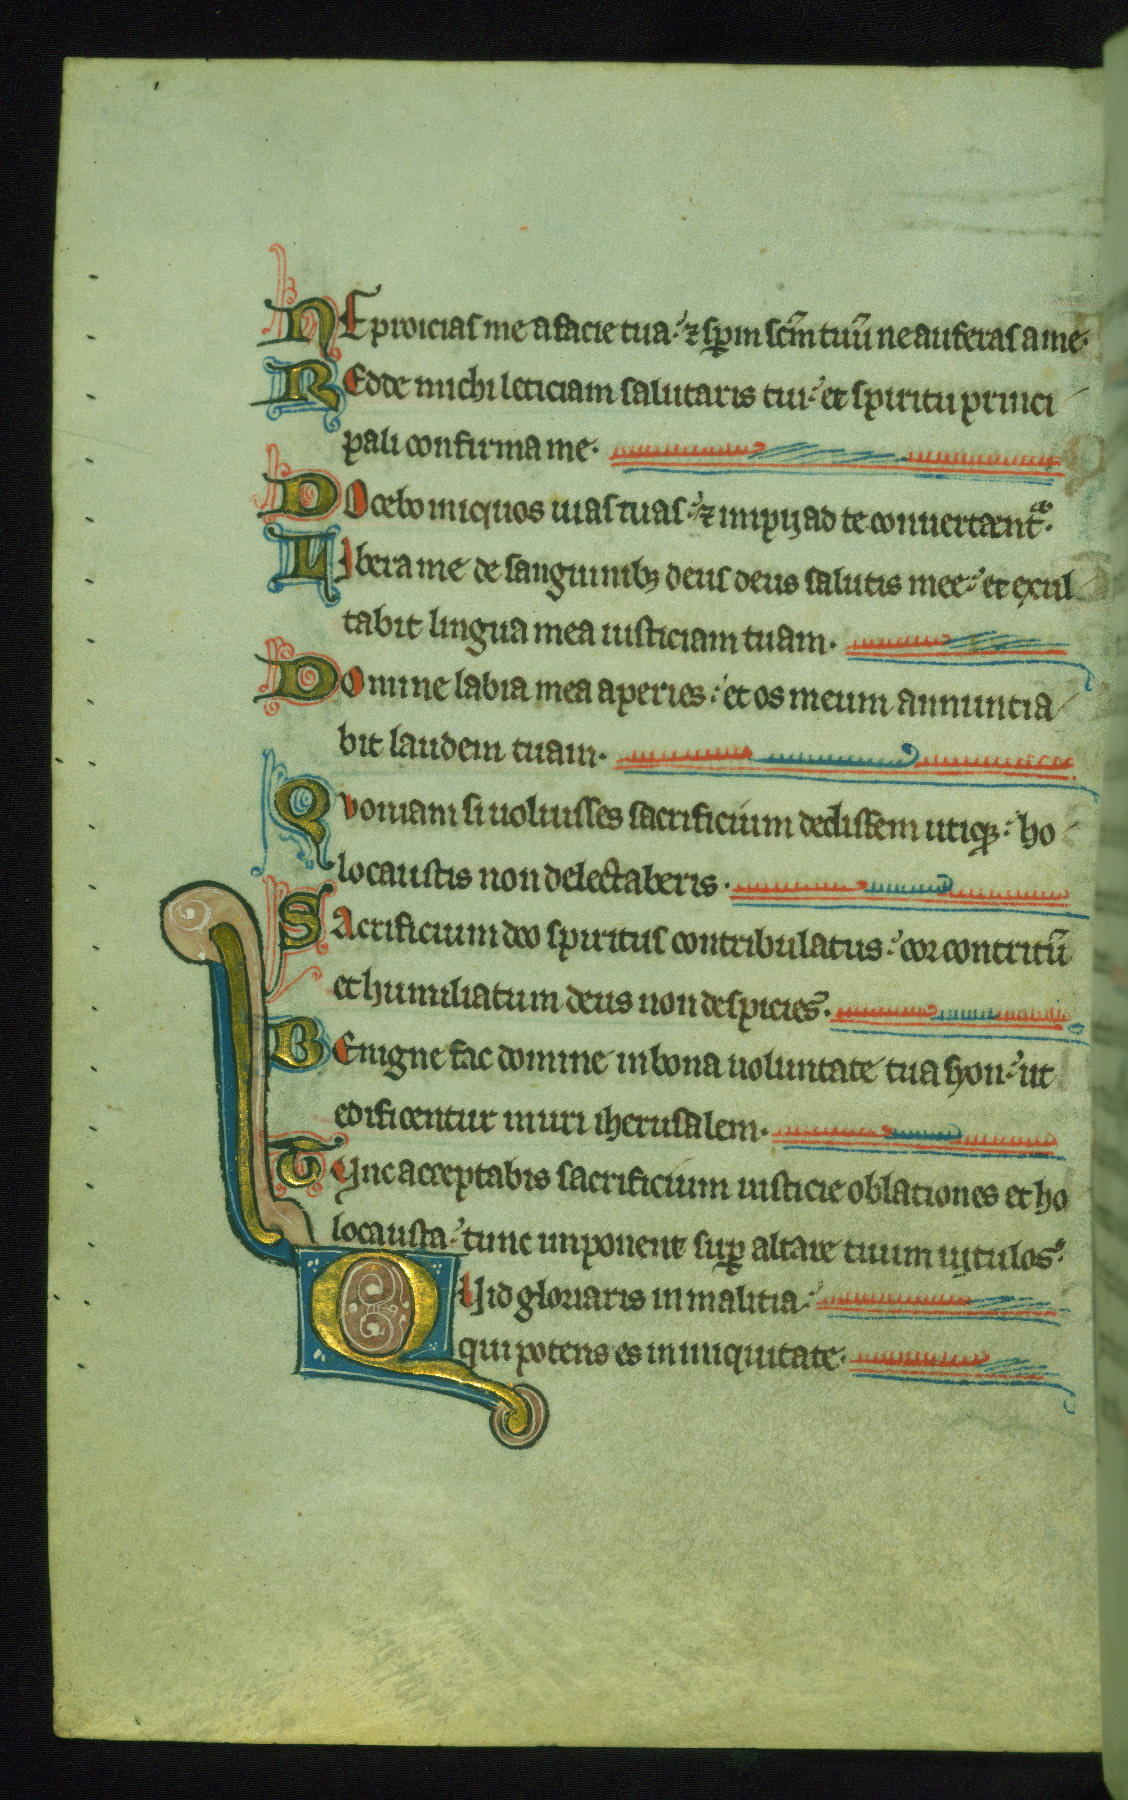 NE proicias me a facie tua: ⁊ sp̄m sc̄m tuū ne auferas a me.
REdde michi leticiam salutaris tui: et spiritu princi
pali confirma me.
DOcebo iniquos uias tuas: ⁊ impij ad te conuertent̄.
LIbera me de sanguinibꝫ deus deus salutis mee: et exul
tabit lingua mea iusticiam tuam.
DOmine labia mea aperies: et os meum annuncia
bit laudem tuam.
QVoniam si uoluisses sacrificium dedissem utiqꝫ: ho
locaustis non delectaberis.
SAcrificium deo spiritus contribulatus: cor contritū
et humiliatum deus non despicies.
BEnigne fac domine in bona uoluntate tua syon: ut
edificentur muri iherusalem.
TUnc acceptabis sacrificium iusticie oblationes et ho
locausta: tunc imponent suꝑ altare tuum uitulos.
QUid gloriaris in malitia:
qui potens es in iniquitate.